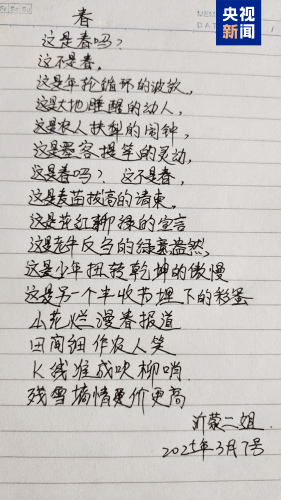 央视
新闻
春
这是春吗？
这不是春，
这是年轮循环的波纹，
这是大地睡醒的动人，
这是农人扶犁的闹钟，
这是墨客提笔的灵动，
这是春吗？ 这不是春，
这是麦苗拔高的请柬，
这是花红柳绿的宣言
这是老牛反刍的绿意盎然，
这是少年扭转乾坤的傲慢
这是另一个丰收节埋下的彩蛋
山花烂漫春报道
田间细作农人笑
K线 成吹柳哨
残雪墒情更价更高
沂蒙二姐
2025年3月7号